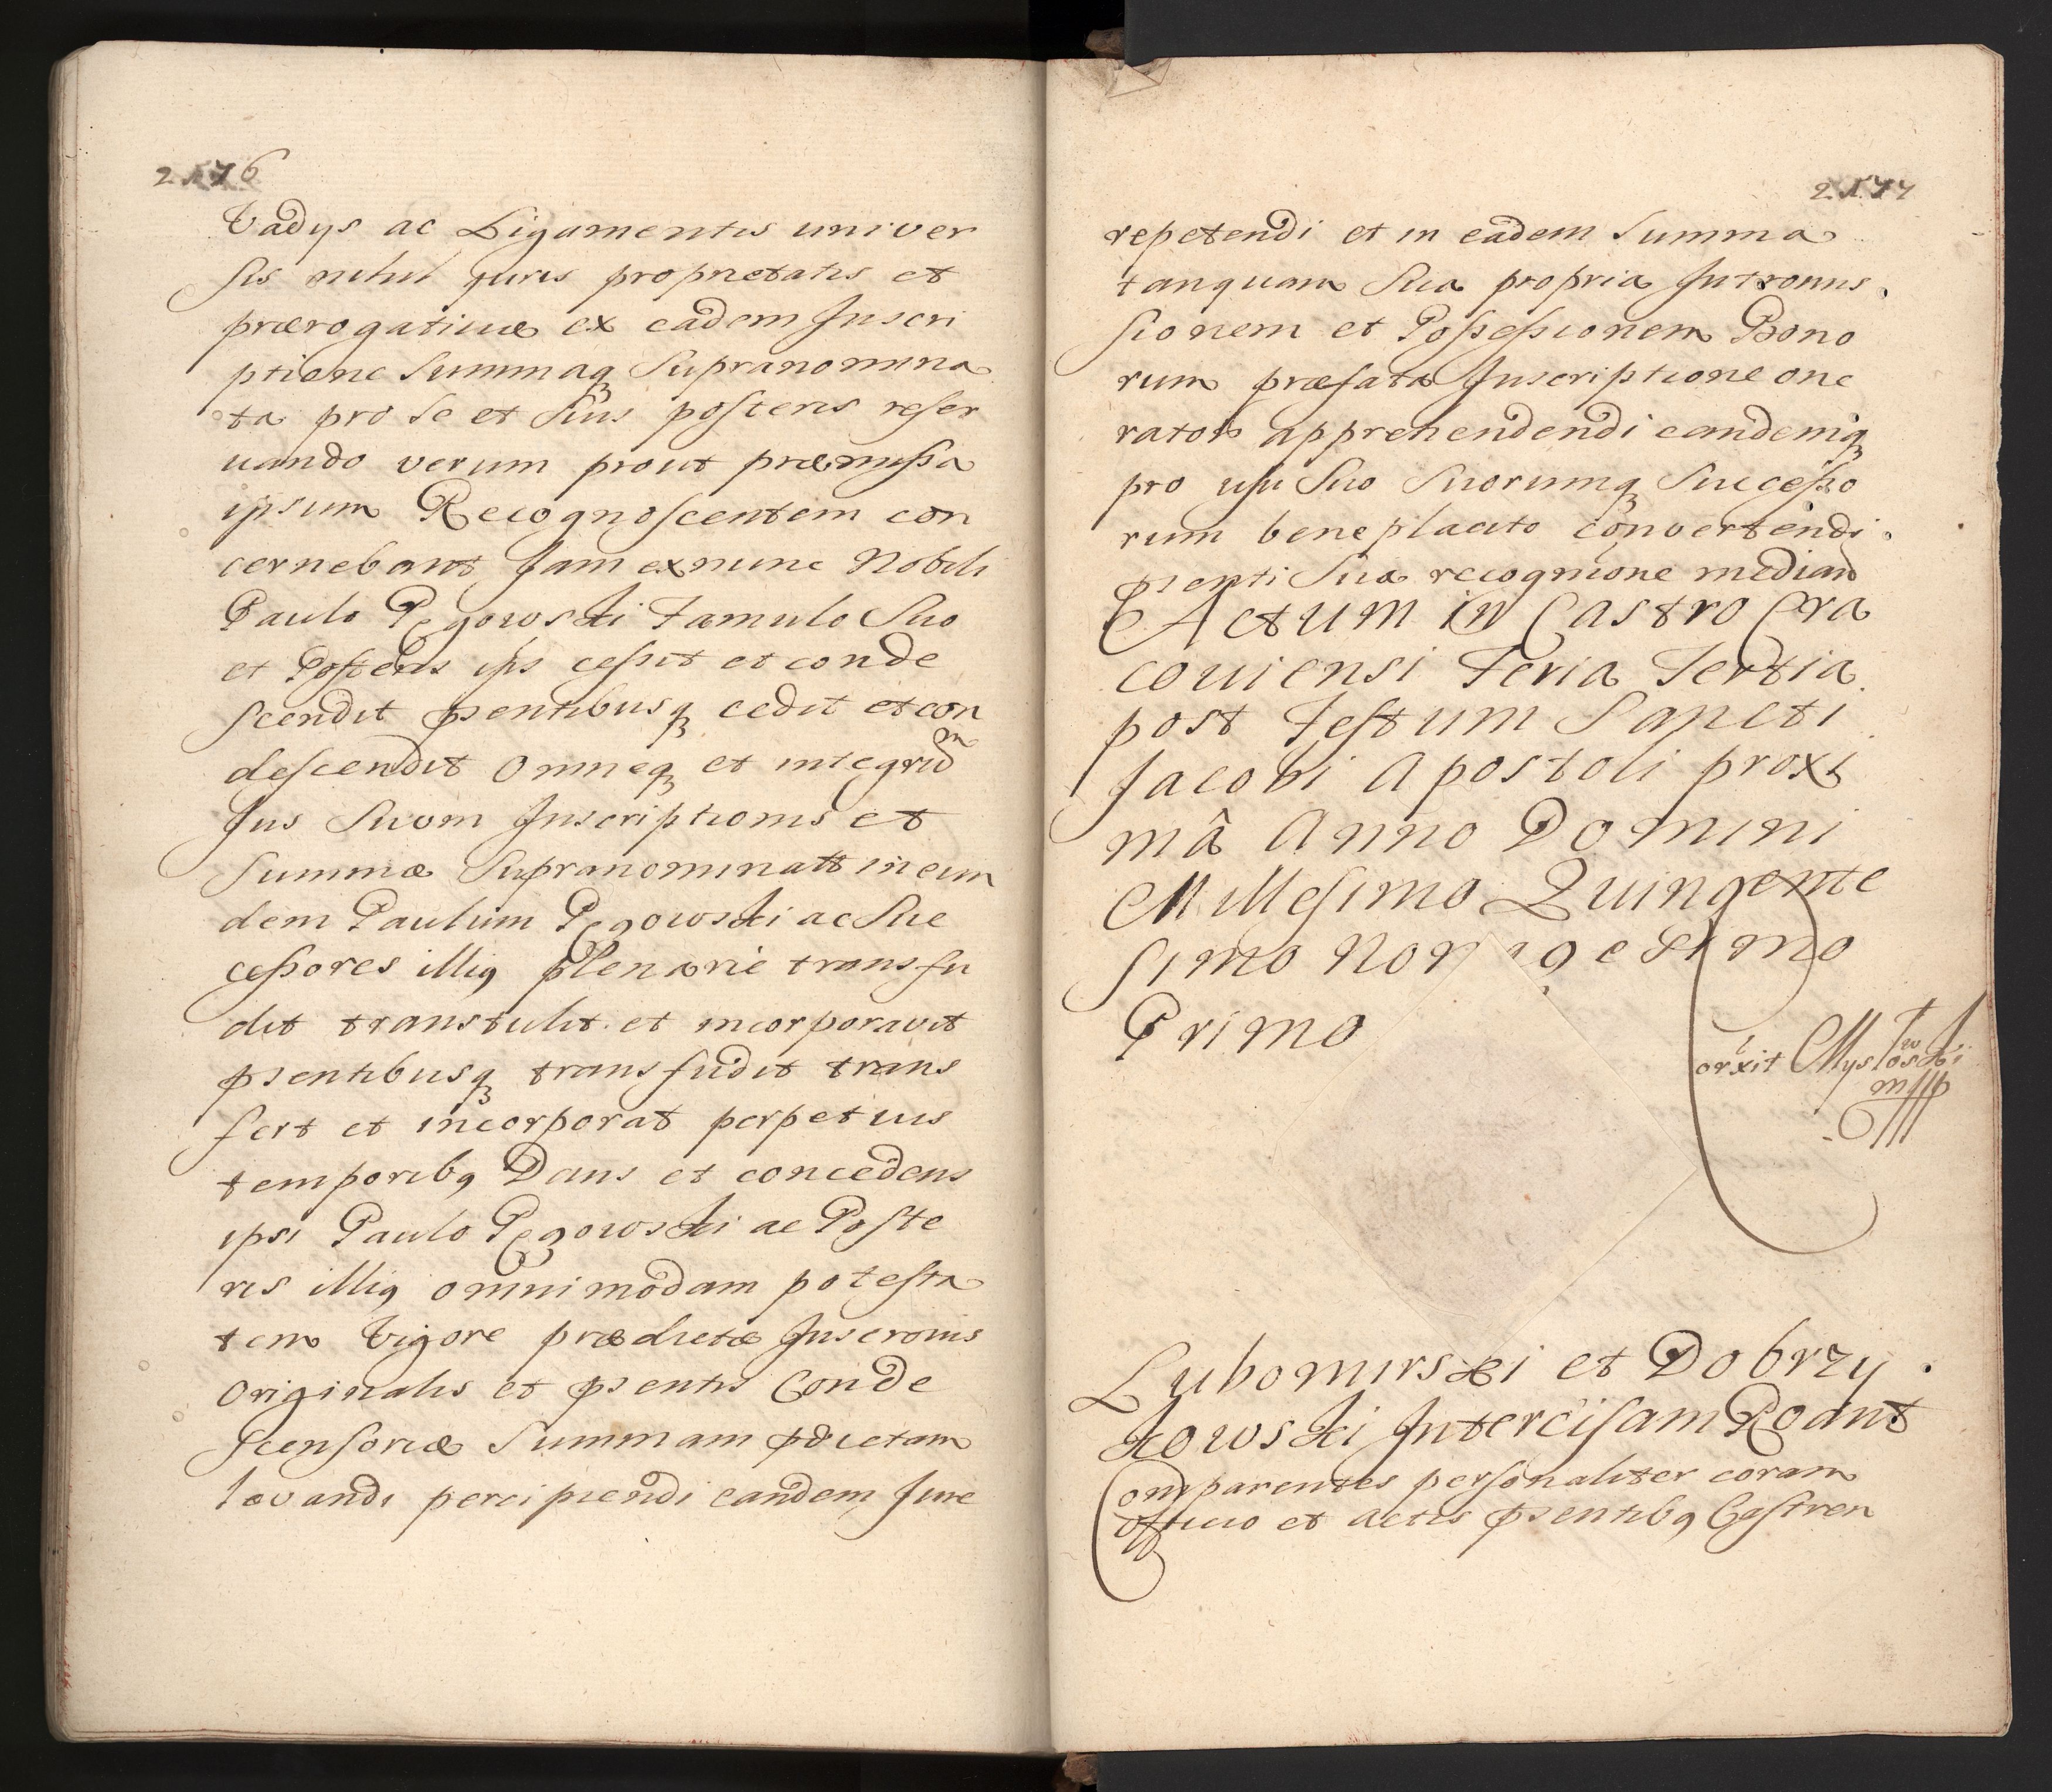 2576
Vadys ac Ligamentis univer
sis nihil juris proprietatis et
prærogativæ ex eadem Inscri
ptione Summaq₃ Supranomina
ta pro se et Suis posteris reser
uando verum prout præmissa
ipsum Recognoscentem con
cernebant Jam ex nunc Nobili
Paulo Pęgowski Famulo Suo
et Posteris ips cessit et conde
scendit pñsentibusq₃ cedit et con
descendit Omneq₃ et integrũ
Jus Suom Inscriptionis et
Summæ Supranominatt in eun
dem Paulum Pęgowski ac Suc
cessores illi9 plenarie transfu
dit transtulit et incorporavit
pñsentibusq₃ transfudit trans
fert et incorporat perpetuis
temporib9 Dans et concedens
ipsi Paulo Pęgowski ac Poste
ris illi9 omnimodam potesta
tem Vigore prædictæ Inscronis
Originalis et pñsentis Conde
scensoriæ Summam pdictam
levandi percipiendi eandem Jure
2577
repetendi et in eadem Summa
tanquam Sua propria Intromis
sionem et Possessionem Bono
rum præfata Inscriptione one
rator apprehendendi eandemq₃
pro usu Suo Suorumq₃ Successo
rum beneplacito convertendi
pñsenti Sua recognione median
Actum in Castro Cra
coviensi Feria Tertia
post Festum Sancti
Jacobi Apostoli proxi
mâ Anno Domini
Millesimo Quingente
simo Nonagesimo
Primo
Lubomirski et Dobrzy
kowski Intercisam Roant
Comparentes personaliter coram
officio et actis pñsentib9 Castren